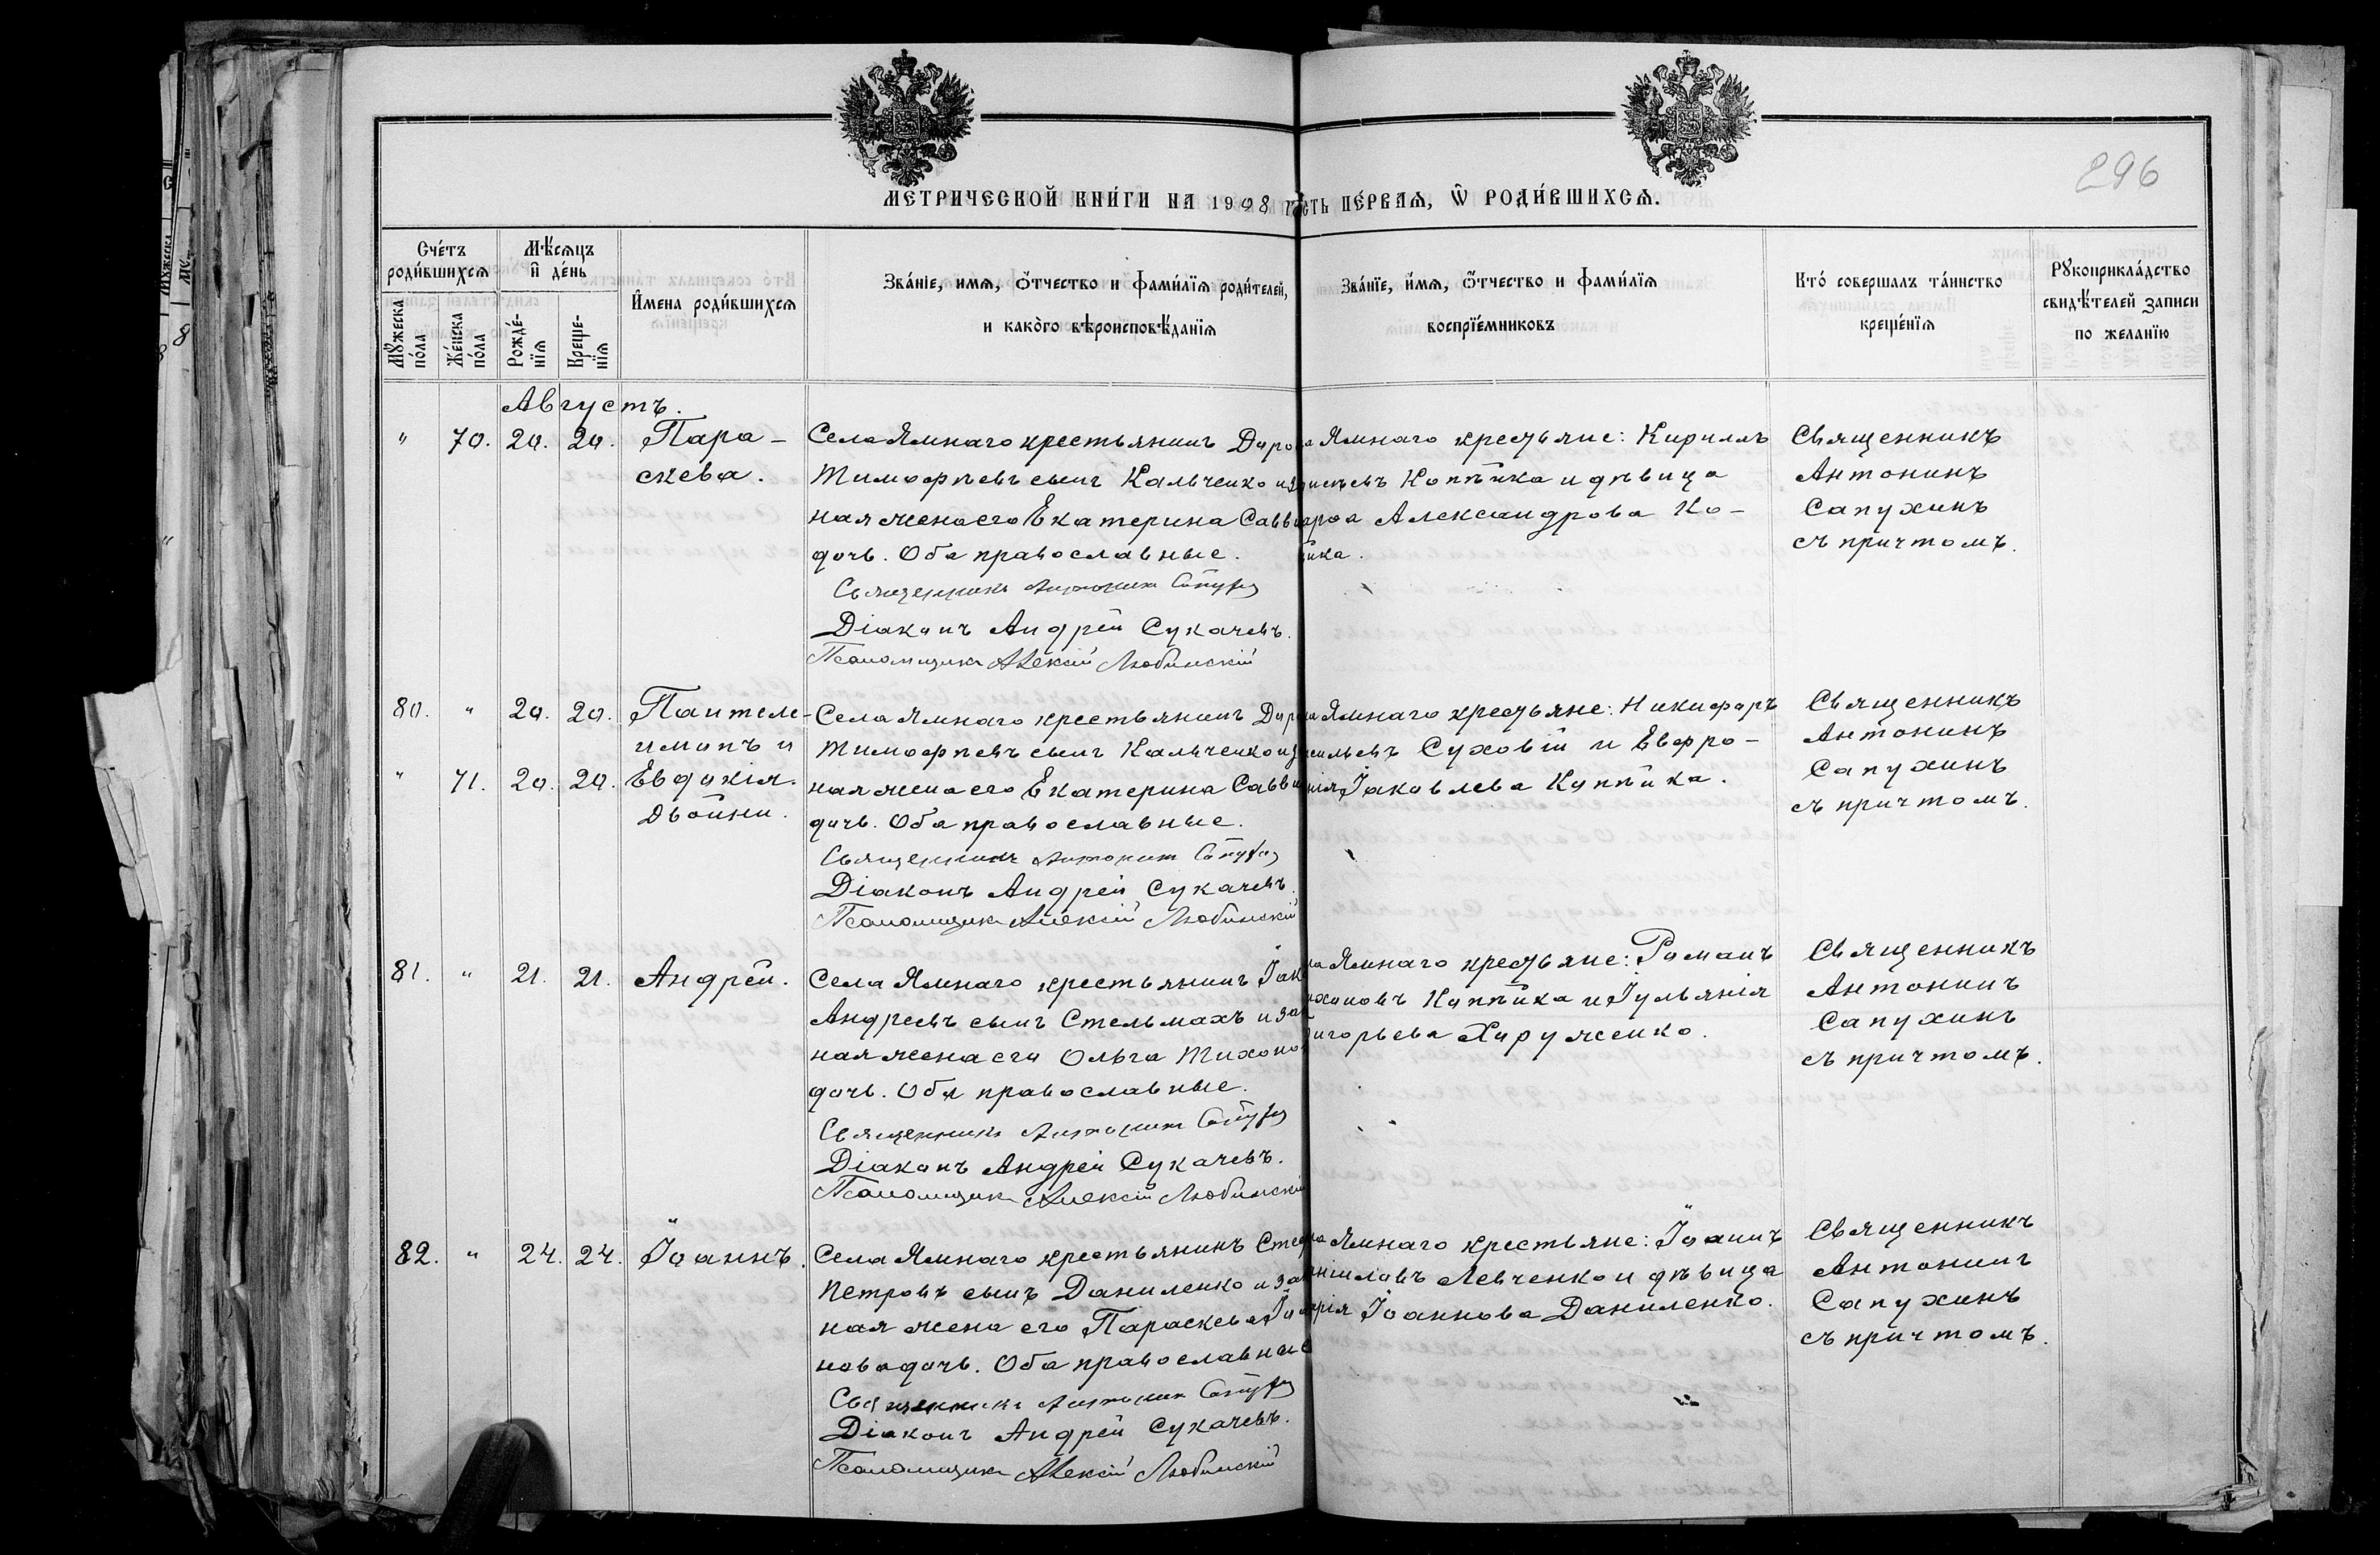 296
МЕТРИЧЕСКОЙ КНИ́ГИ НА 1908 ЧАСТЬ ПЕ́РВАѦ, Ѡ РОДИ́ВШИХСѦ.
Сче́тъ роди́вшихсѧ
Мѣ́сѧцъ и҆ де́нь
Мꙋ́жеска по́ла
Же́нска по́ла
Рожде́-нїѧ
Креще-нїѧ
И҆́мена роди́вшихсѧ
Зва́нїе, имѧ, ѻ҆́тчество и фами́лїѧ роди́телей,
и како́го вѣроисповѣ́данїѧ
Зва́нїе, и҆́мѧ, ѻ҆́тчество и фами́лїѧ
воспрїе́мниковъ
Кто́ совершалъ та́инство
креще́нїѧ
Рꙋкоприкла́дство
свидѣ́телей записи
по желанїю
Августъ.
" 70. 20. 20. Пара-
скева.
Села Ямнаго крестьянинъ
Тимофѣевъ сынъ Кальченко и
ная жена его Екатерина Савви
дочь. Оба православные.
Священникъ Антонин
Діаконъ Андрей Сукачевъ.
Псаломщикъ Алексій Любинскій
Ямнаго крестьяне: Кириллъ
Копѣйка и дѣвица
Александрова Ко-
йка.
Священникъ
Антонинъ
Сапухинъ
съ причтомъ.
80. " 20. 20. Пантеле-
имонъ и
" 71. 20. 20. Евдокія.
Двойни.
Села Ямнаго крестьянинъ
Тимофѣевъ сынъ Кальченко и
ная жена его Екатерина Савви
дочь. Оба православные.
Священникъ Антонин
Діаконъ Андрей Сукачевъ.
Псаломщикъ Алексій Любинскій
Ямнаго крестьяне: Никифоръ
Суховій и Евфро-
нія Іаковлева Копѣйка.
Священникъ
Антонинъ
Сапухинъ
съ причтомъ.
81. " 21. 21. Андрей.
Села Ямнаго крестьянинъ Іак
Андреевъ сынъ Стельмахъ и зак
ная жена его Ольга Тихоно
дочь. Оба православные.
Священникъ Антонин
Діаконъ Андрей Сукачевъ.
Псаломщикъ Алексій Любинскій
Ямнаго крестьяне: Романъ
Копѣйка и Іульянія
игорьева Хоруженко.
Священникъ
Антонинъ
Сапухинъ
съ причтомъ.
82. " 24. 24. Іоаннъ.
Села Ямнаго крестьянинъ Стеф
Петровъ сынъ Даниленко и зак
ная жена его Параскева Іо
нова дочь. Оба православные
Священникъ Антонин
Діаконъ Андрей Сукачевъ.
Псаломщикъ Алексій Любинскій
Ямнаго крестьяне: Іоаннъ
Левченко и дѣвица
рія Іоаннова Даниленко.
Священникъ
Антонинъ
Сапухинъ
съ причтомъ.